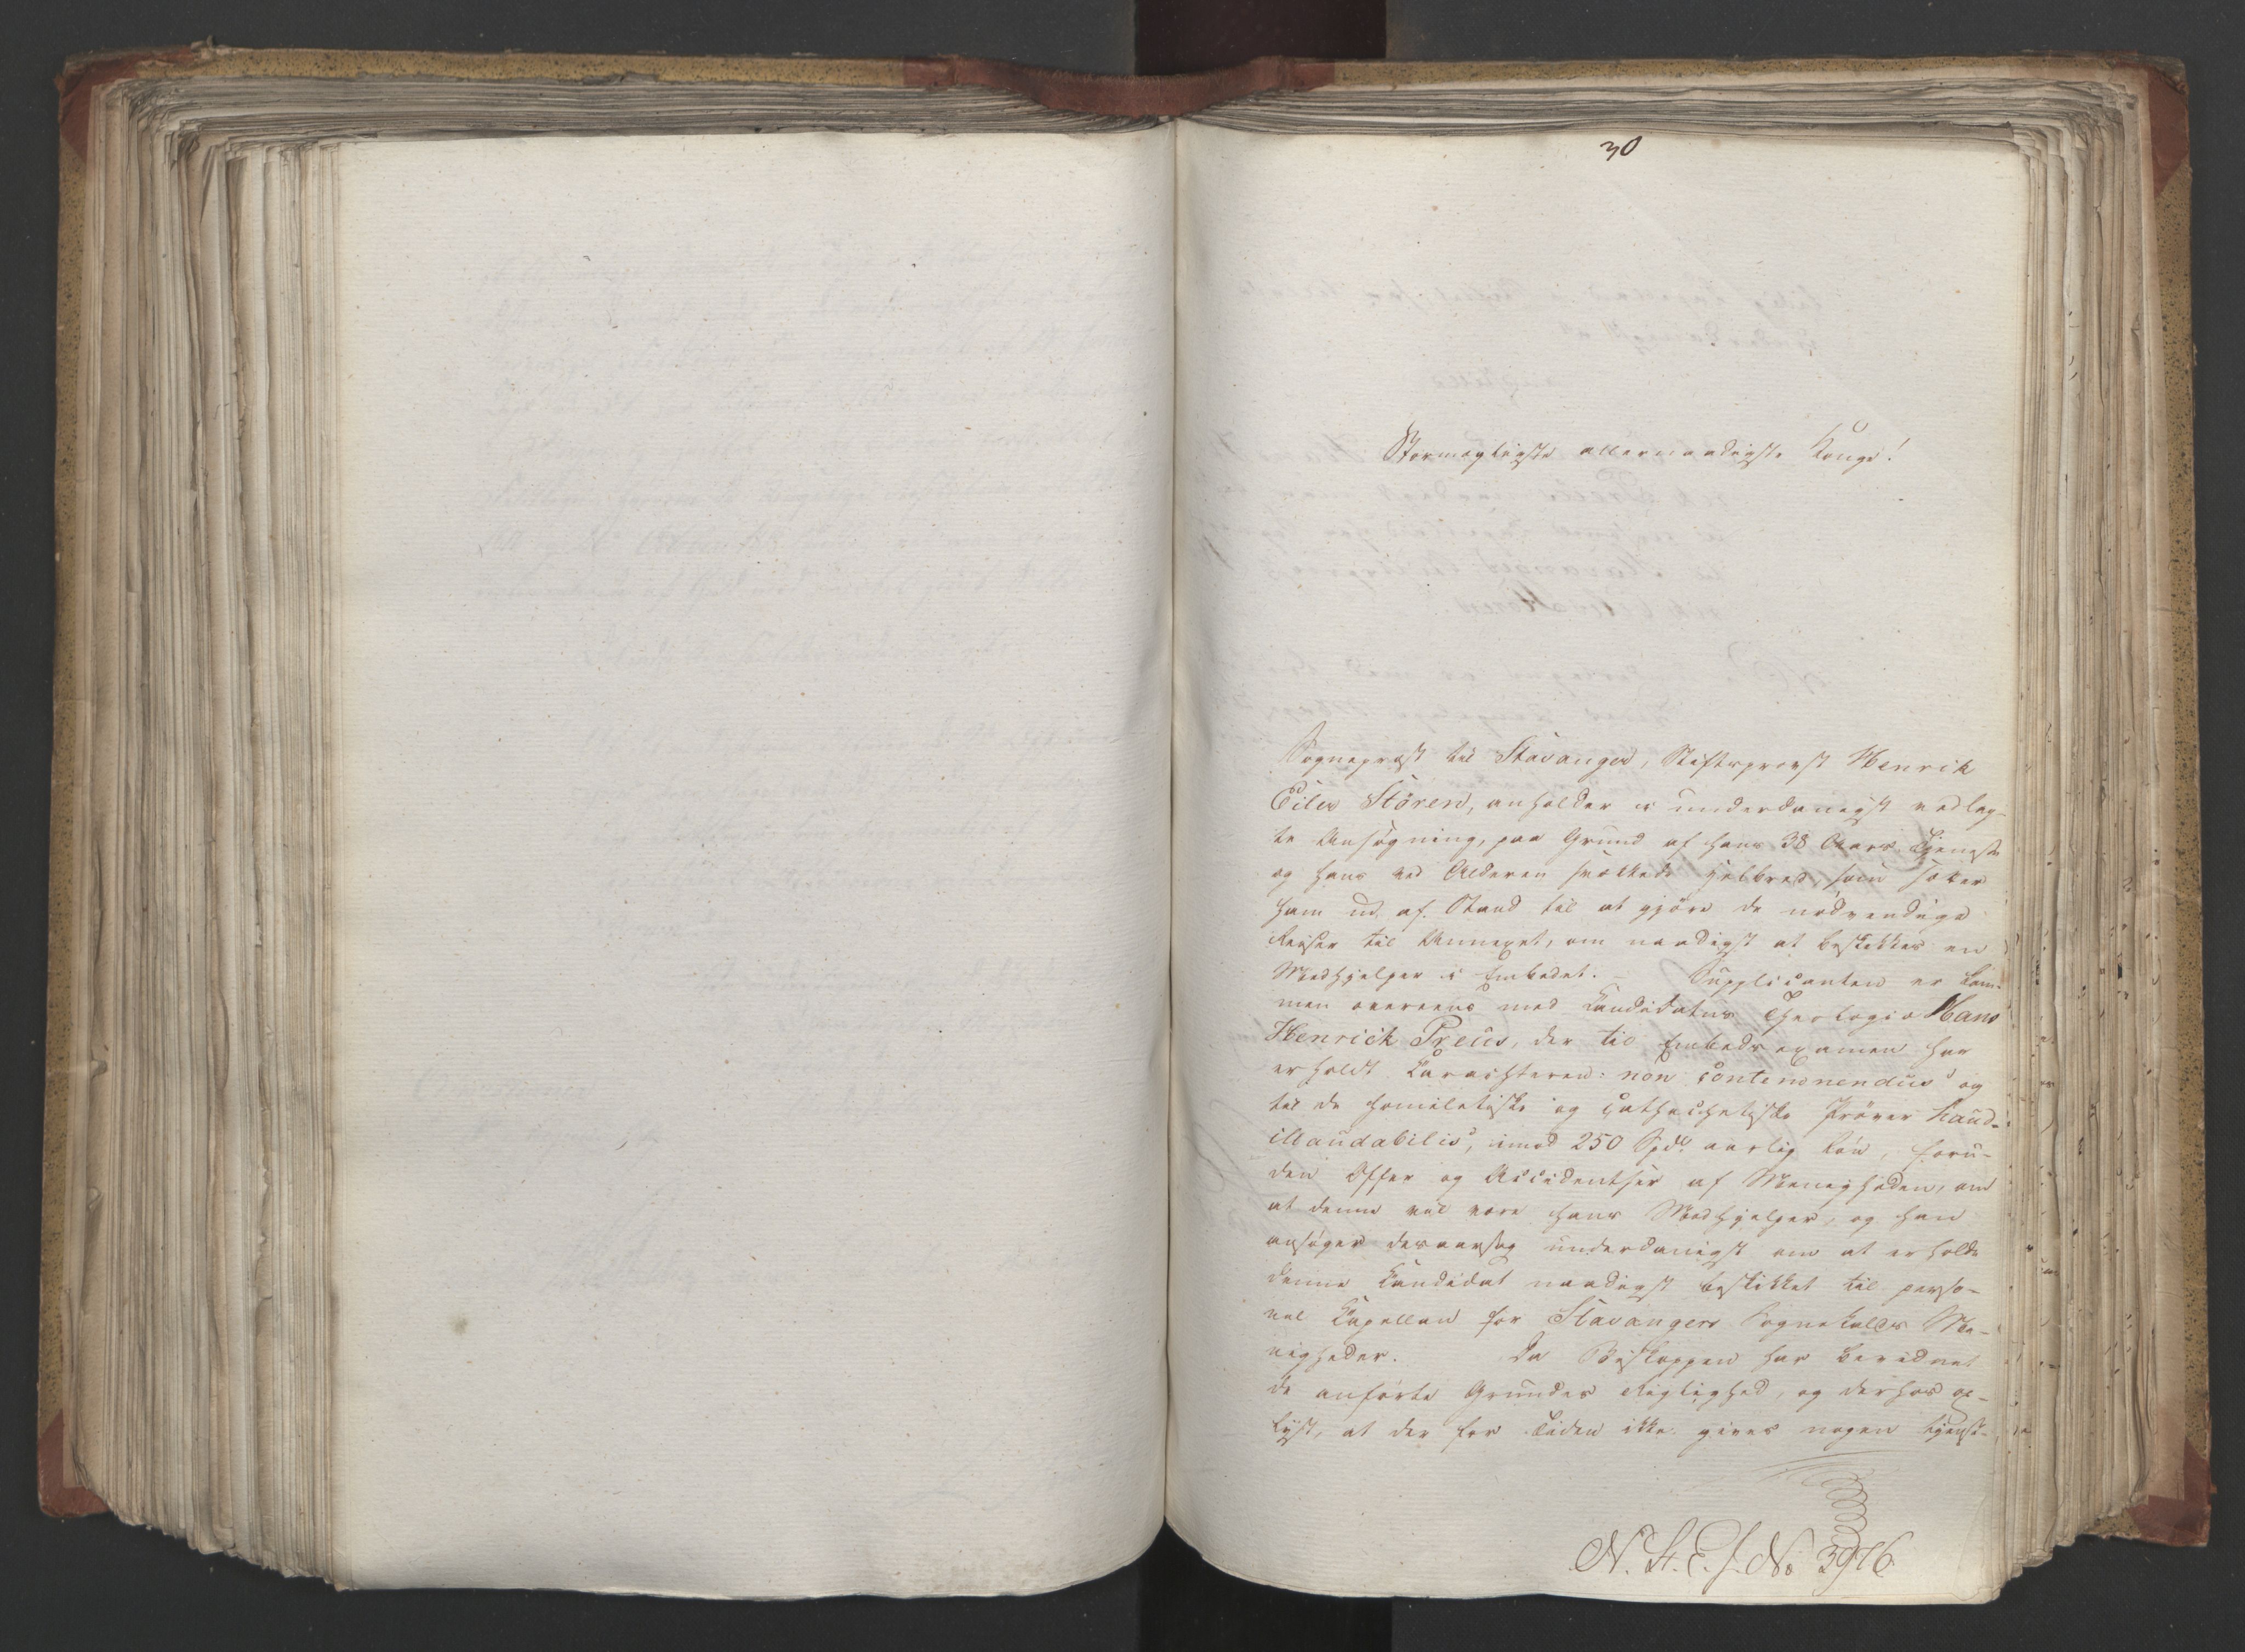 30
Stormægtigste allernaadigste Konge!
Sognepræst til Stavanger, Stiftsprovst Henrik
Eiler Stören, anholder i underdanigst vedlag-
te Ansøgning, paa Grund af hans 38 Aars Tjeneste
og hans ved Alderen svækkede Helbred, som sætter
ham ud af Stand til at gjöre de nödvendige
Reiser til Annexet, om naadigst at beskikkes en
Medhjelper i Embedet. – Supplicanten er kom-
men overeens med Candidatus Theologiæ Hans
Henrich Preus, der til Embedsexamen har
erholdt Carachteren: non contemnendus og
til de homiletiske og cathechetiske Pröver haud
illaudabilis, imod 250 Spd. aarlig Lön, foru-
den Offer og Accidentser af Menigheden, om
at denne vil være hans Medhjelper, og han
ansöger desaarsag underdanigst om at erholde
denne Candidat naadigst beskikket til perso-
nel Capellan for Stavangers Sognekalds Me-
nigheder. Da Biskoppen har bevidnet
de anförte Grundes Rigtighed, og derhos op-
lyst, at der for Tiden ikke gives nogen tjenst-
N. St. E. J. No 3976